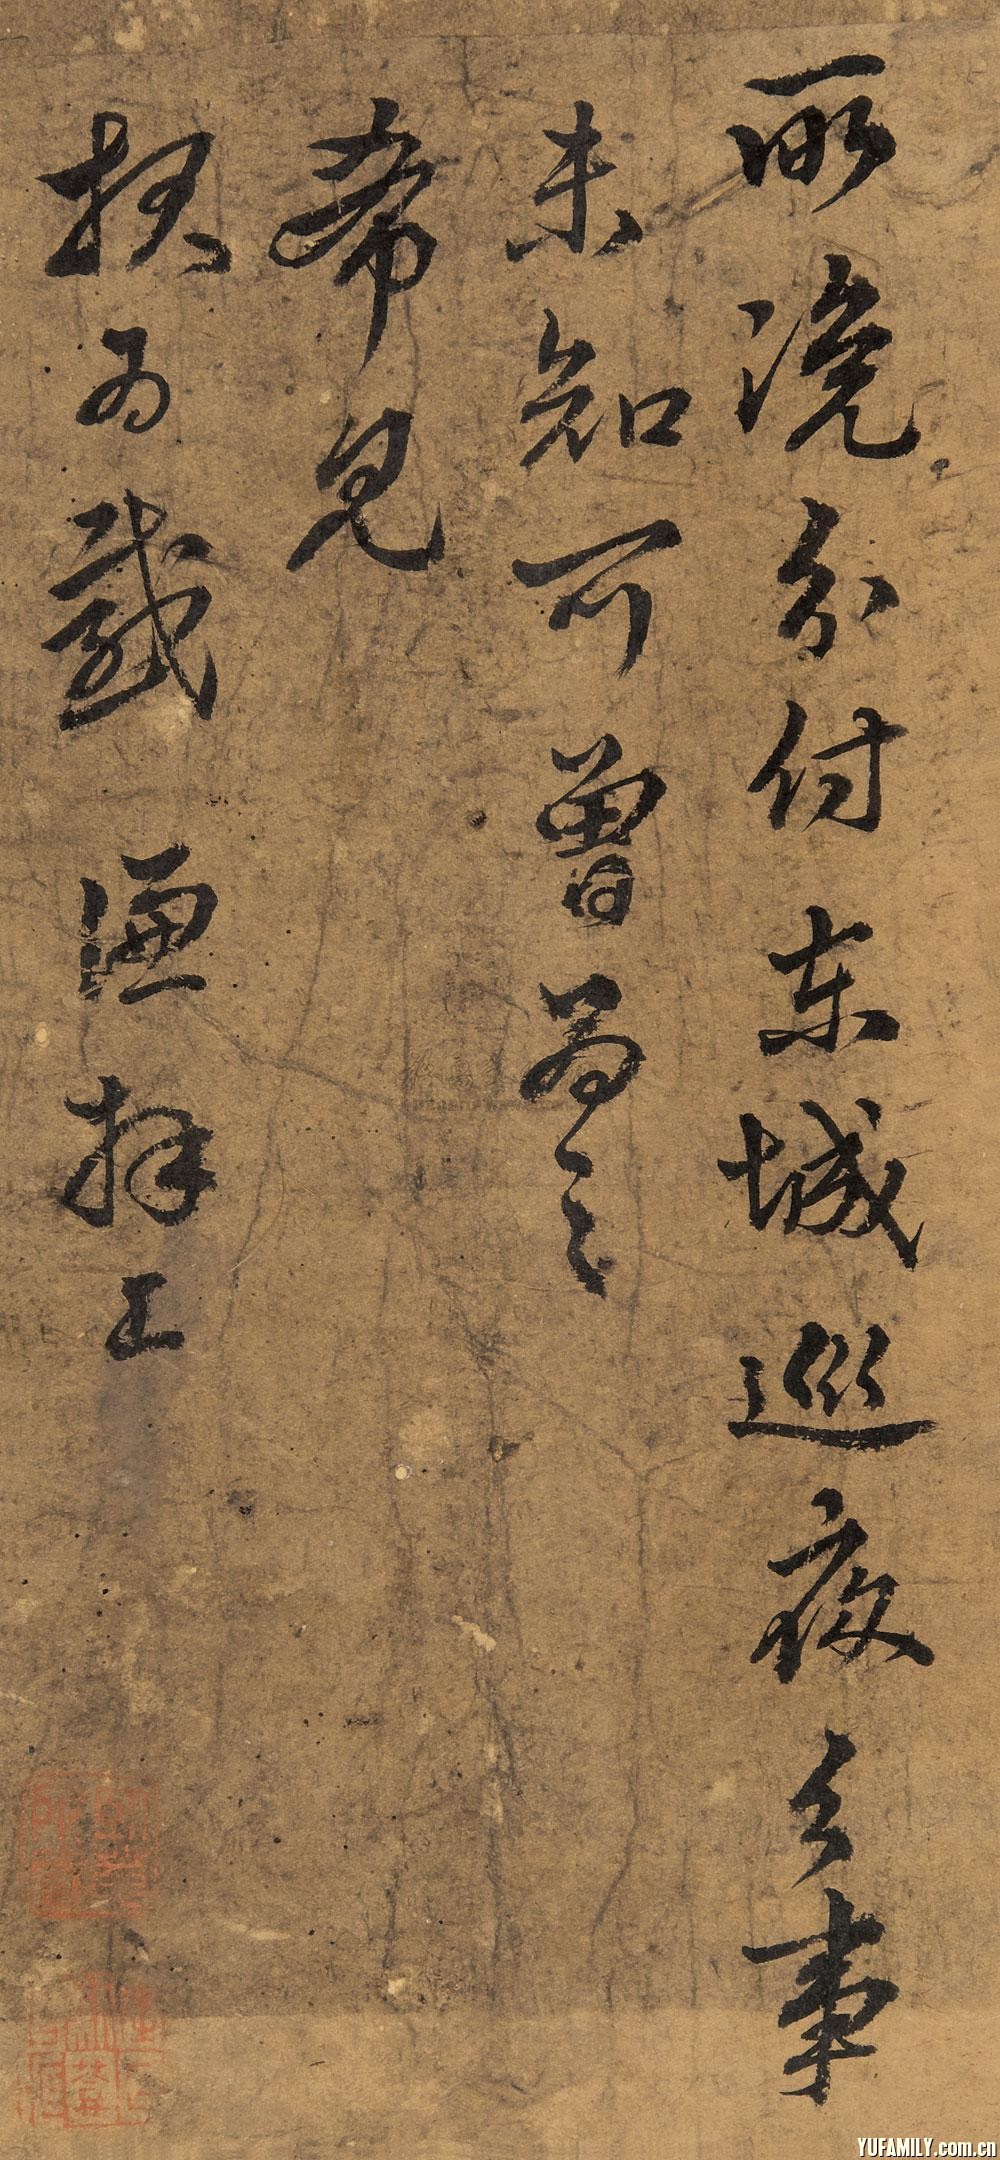 所浼分付東城巡夜之事
未知可曾為之
希見
報為感 海拜上
YUFAMILY.com.cn